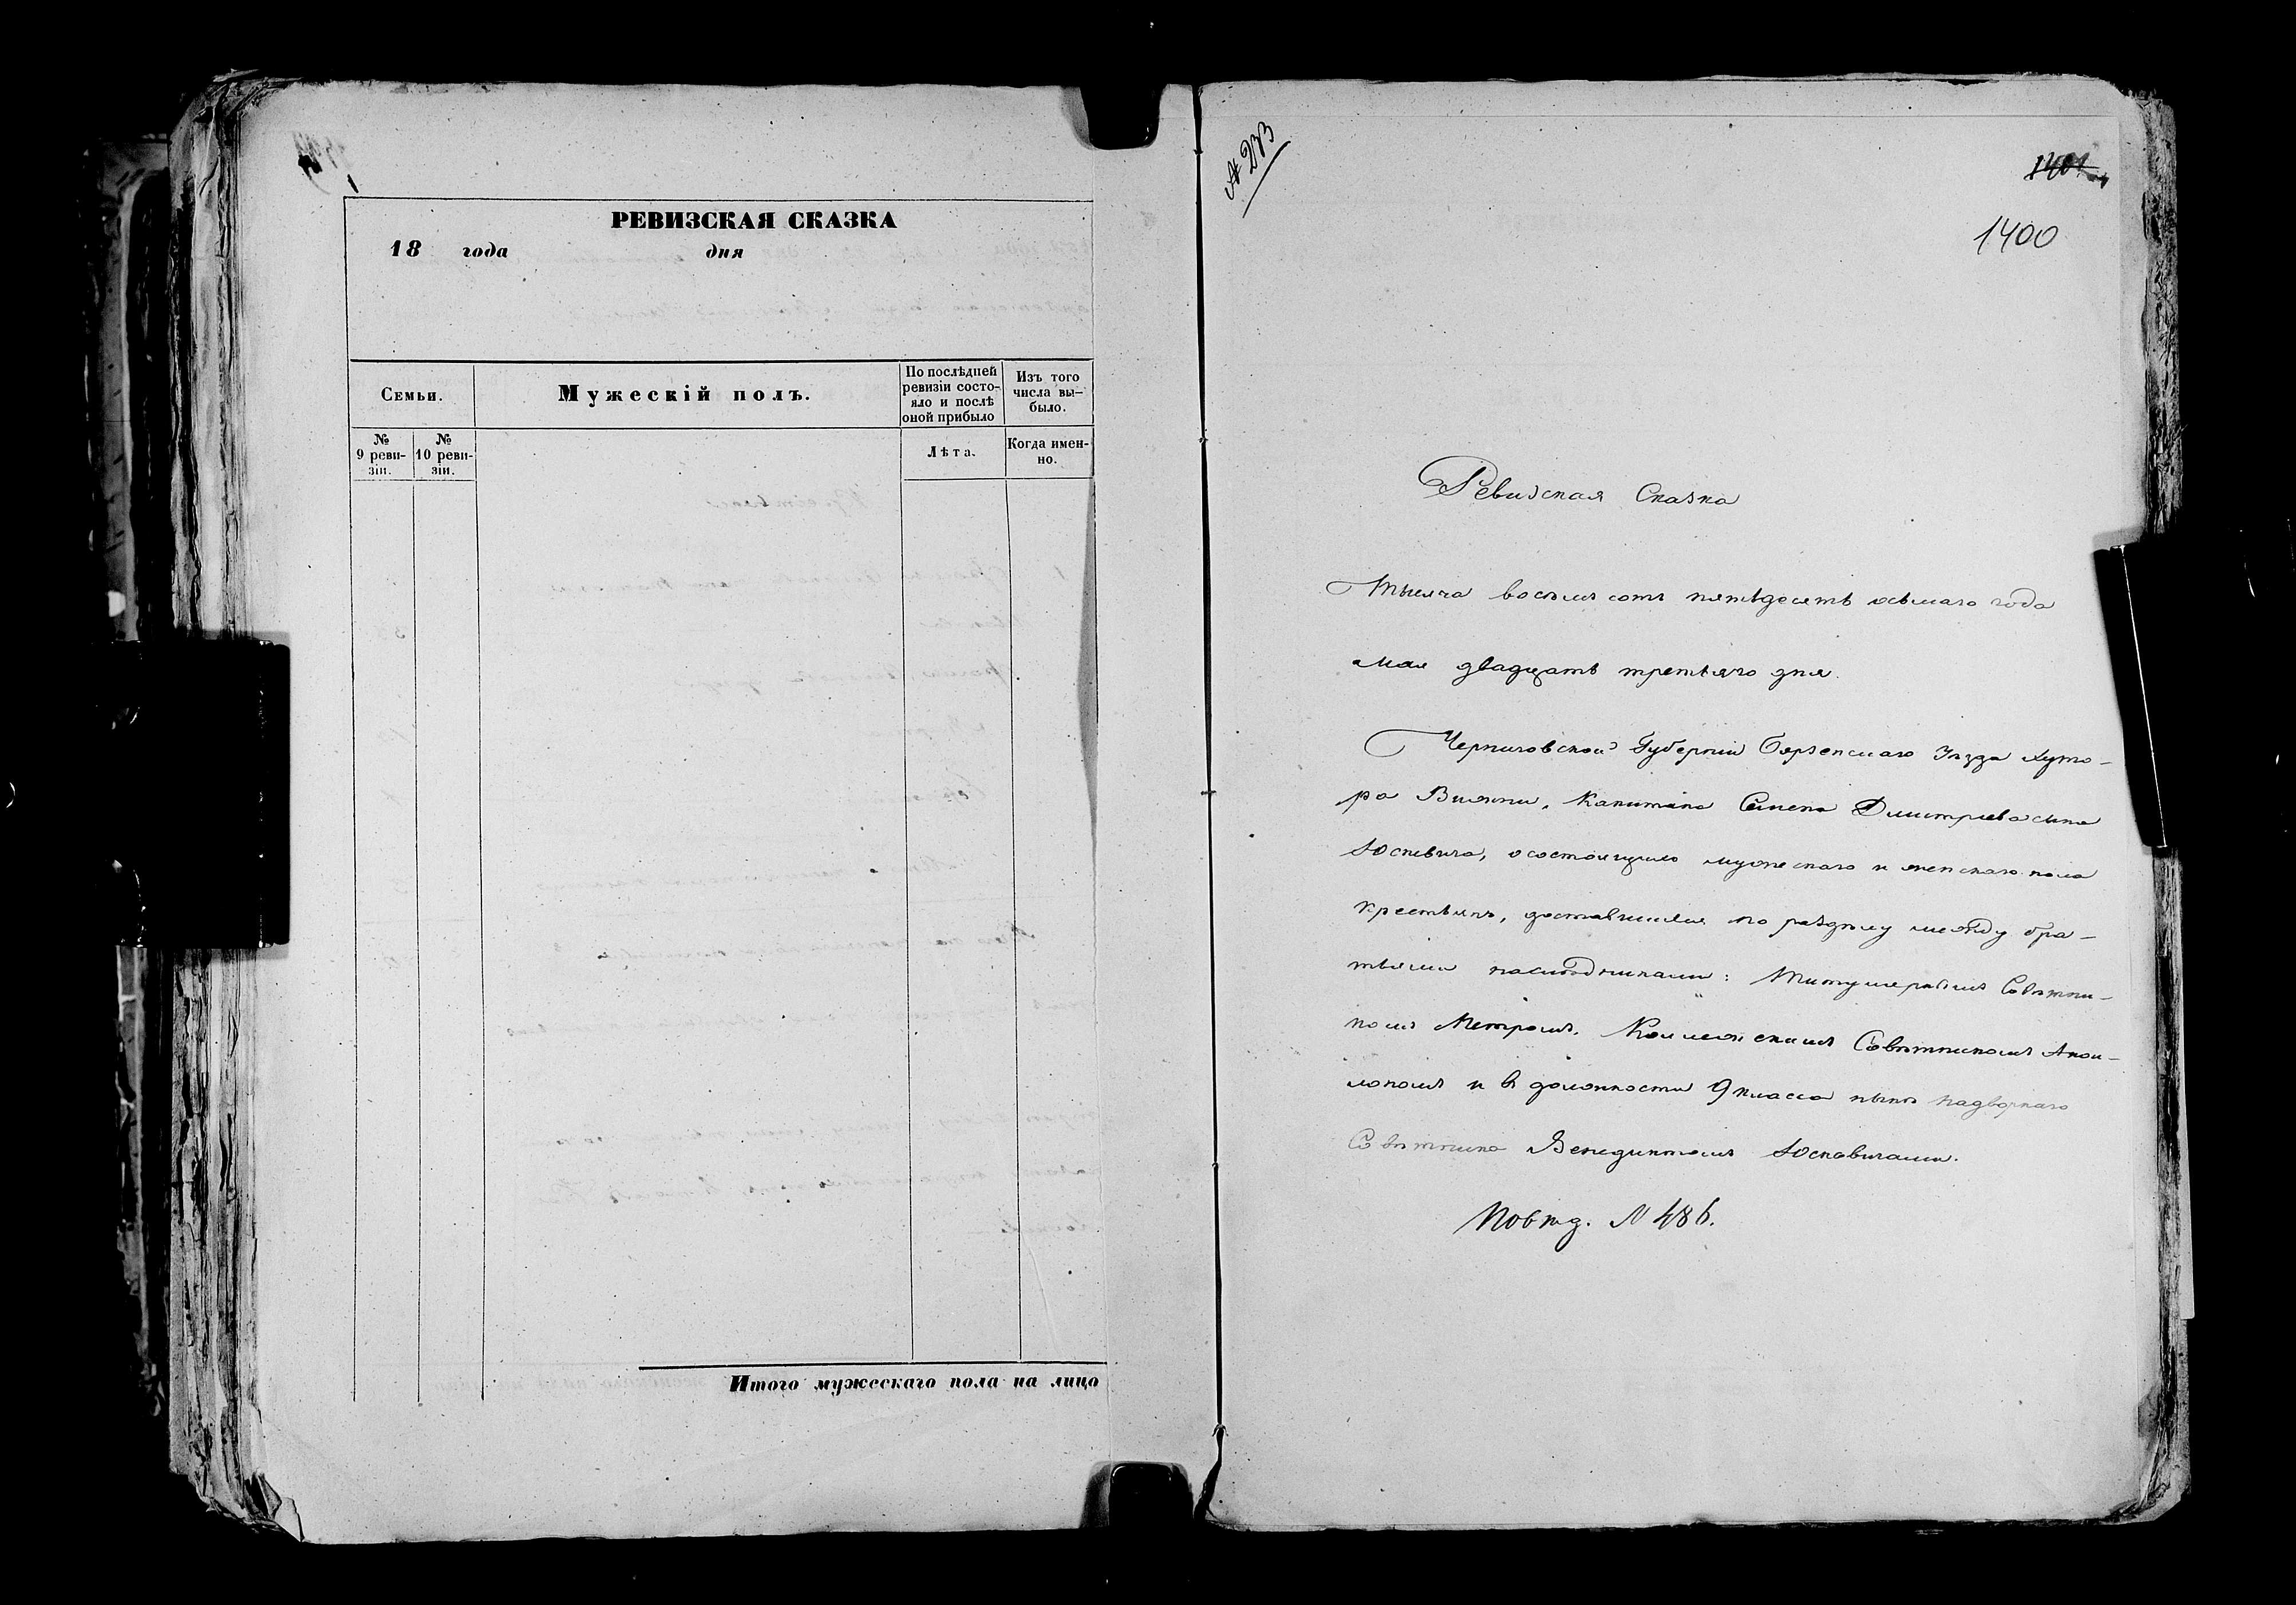 РЕВИЗСКАЯ СКАЗКА
18 года дня
Семьи.
Мужескій полъ.
По послѣдней
ревизіи состо-
яло и послѣ
оной прибыло
Изъ того
числа вы-
было.
№
9 реви-
зіи.
№
10 реви-
зіи.
Лѣта.
Когда имен-
но.
Итого мужескаго пола на лицо
№ 233
1401
1400
Ревизская Сказка
Тысяча восемь сотъ пятьдесятъ осьмаго года
мая двадцать третьяго дня.
Черниговской Губерніи Борзенскаго Уѣзда Хуто-
ра Капитана Семена Дмитріева сына
Юскевича, о состоящихъ мужескаго и женскаго пола
крестьянъ, доставшихся по раздѣлу между бра-
тьями наслѣдниками: Титулярнымъ Совѣтни-
комъ Петромъ, Коллежскимъ Совѣтникомъ Апол-
лономъ и въ должности 9 класса нынѣ надворнаго
Совѣтника Венедиктомъ Юскевичами.
№ 486.